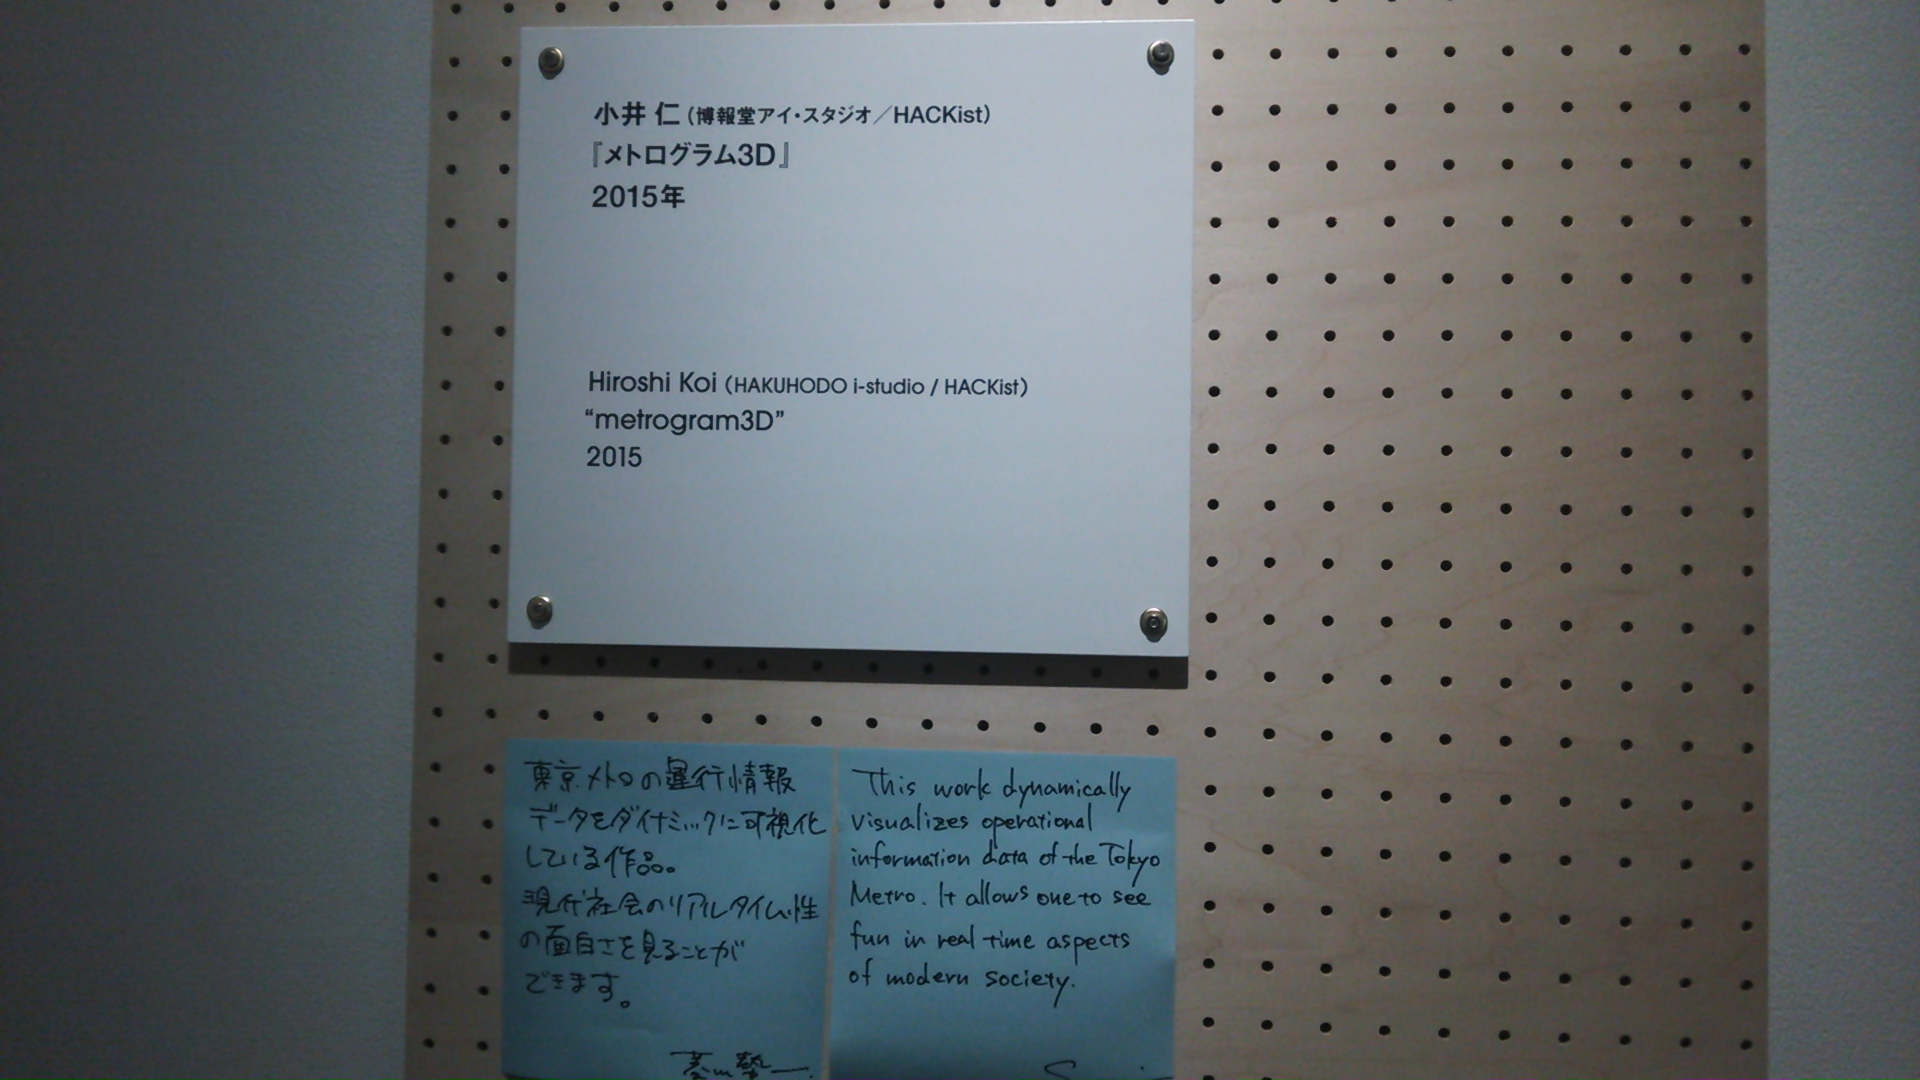 小井 仁（博報堂アイ・スタジオ／HACKist）
『メトログラム3D』
2015年
Hiroshi Koi (HAKUHODO i-studio / HACKist)
“metrogram3D”
2015
東京メトロの運行情報
データをダイナミックに可視化
している作品。
現代社会のリアルタイム性
の面白さを見ることが
できます。
This work dynamically
visualizes operational
information data of the Tokyo
Metro. It allows one to see
fun in real time aspects
of modern society.